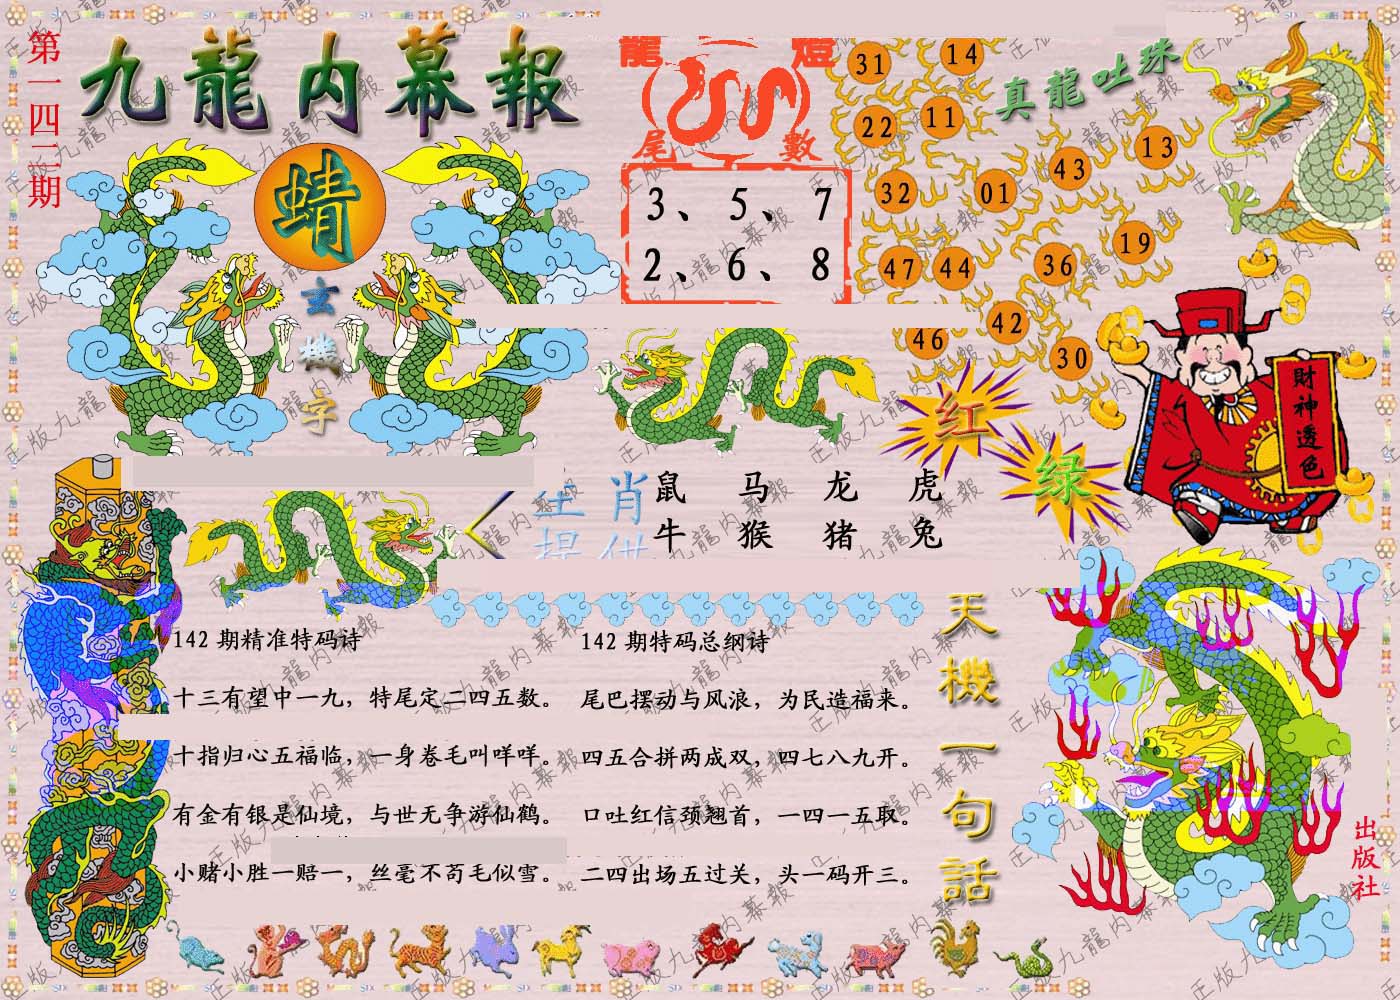 第一四二期
九龍内幕報
蜻
玄機字
龍燈
尾數
3、5、7
2、6、8
真龍吐珠
31
14
22
11
43
13
32
01
47
44
36
19
46
42
30
红
绿
財神透色
肖
鼠 马 龙 虎
牛 猴 猪 兔
142 期精准特码诗
十三有望中一九，特尾定二四五数。
十指归心五福临，一身卷毛叫咩咩。
有金有银是仙境，与世无争游仙鹤。
小赌小胜一赔一，丝毫不苟毛似雪。
142 期特码总纲诗
尾巴摆动与风浪，为民造福来。
四五合拼两成双，四七八九开。
口吐红信颈翘首，一四一五取。
二四出场五过关，头一码开三。
天機一句話
出版社
正版九龍内幕報